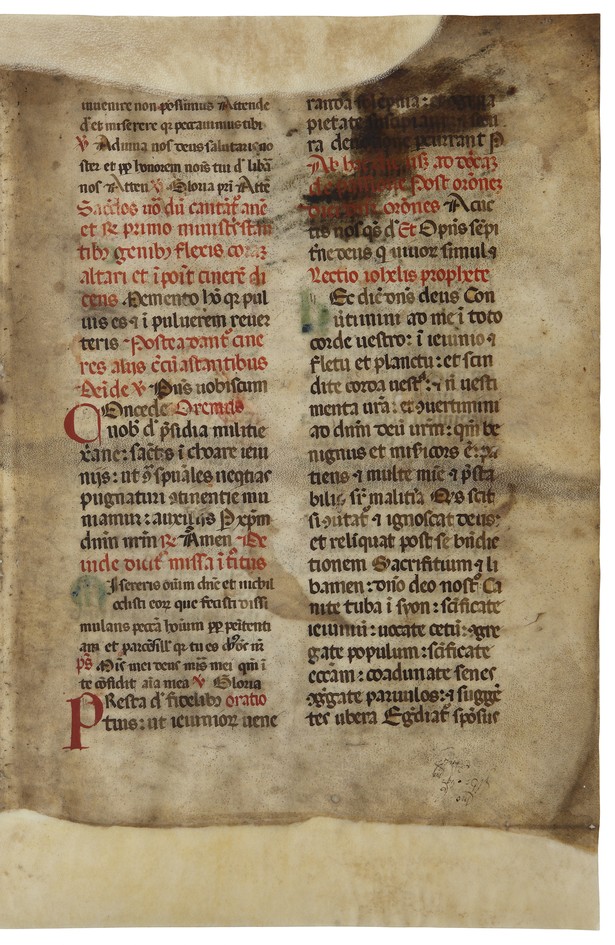 inuenire non possimus Attende
d̄ et miserere qr peccauimus tibi
V Adiuua nos deus salutaris no
ster et pp honorem nois̄ tui d̄ libā
nos Atten V Gloria pri Atte
Sacdos uo dn̄ cantat̄ anē
et sr̄ primo ministrstan
tibꝫ genibꝫ flexis corā
altari et ipoit cinerē di
cens Memento hō qr pul
uis es ⁊ i puluerem reuer
teris Postea dant cine
res alijs ccū astantibus
Deide V Dn̄s uobiscum
Concede Oremus
nob d̄ psidia militie
xane: sactis i choare ieiu
nijs: ut ꝯ spuales neqtias
pugnaturi ꝯtinentie mu
niamur: auxilijs P xpm
dnm nrm R Amen De
inde dicit missa i titus
Misereris oium dn̄e et nichil
odisti eoꝝ que fecisti dissi
mulans pecca hoium pp peitenti
am et parces ill̄ qr tu es ds̄ n̄r
ps Mis̄ mei deus mis̄ mei qm̄ i
te cōfidit aīa mea V Gloria
Presta d̄ fidelibꝫ oratio
tuis: ut ieiunioꝝ uene
randa solepnia:
pietate suscipiant
ra deuotione percurrant P
Ab hac
Post orōneꝫ
orōnes A cūc
tis nos qs d̄ Et Opn̄s sēpi
tne deus q uiuoꝝ simul ⁊
Lectio iohelis prophete
Hec dic̄ dn̄s deus Con
uitimini ad me i toto
corde uestro: i ieiunio ⁊
fletu et planctu: et scin
dite corda uest̄: ⁊ n̄ uesti
menta ur̄a: et ꝯuertimini
ad dnm deū urm: qm̄ be
nignus et mis̄icors ē: pa
tiens ⁊ multe mie ⁊ psta
bilis sr̄ malitia Q̄s scit
si ꝯutat̄ ⁊ ignoscat deus:
et relīquat post se bn̄dic
tionem Sacrifitium ⁊ li
bamen: dn̄o deo nost̄ Ca
nite tuba i syon: scīficate
ieiuniū: uocate cetū: ꝯgre
gate populum: scīficate
eccām: coadunate senes
ꝯgregate paruulos: ⁊ sugge
tes ubera Egdiat̄ sposus